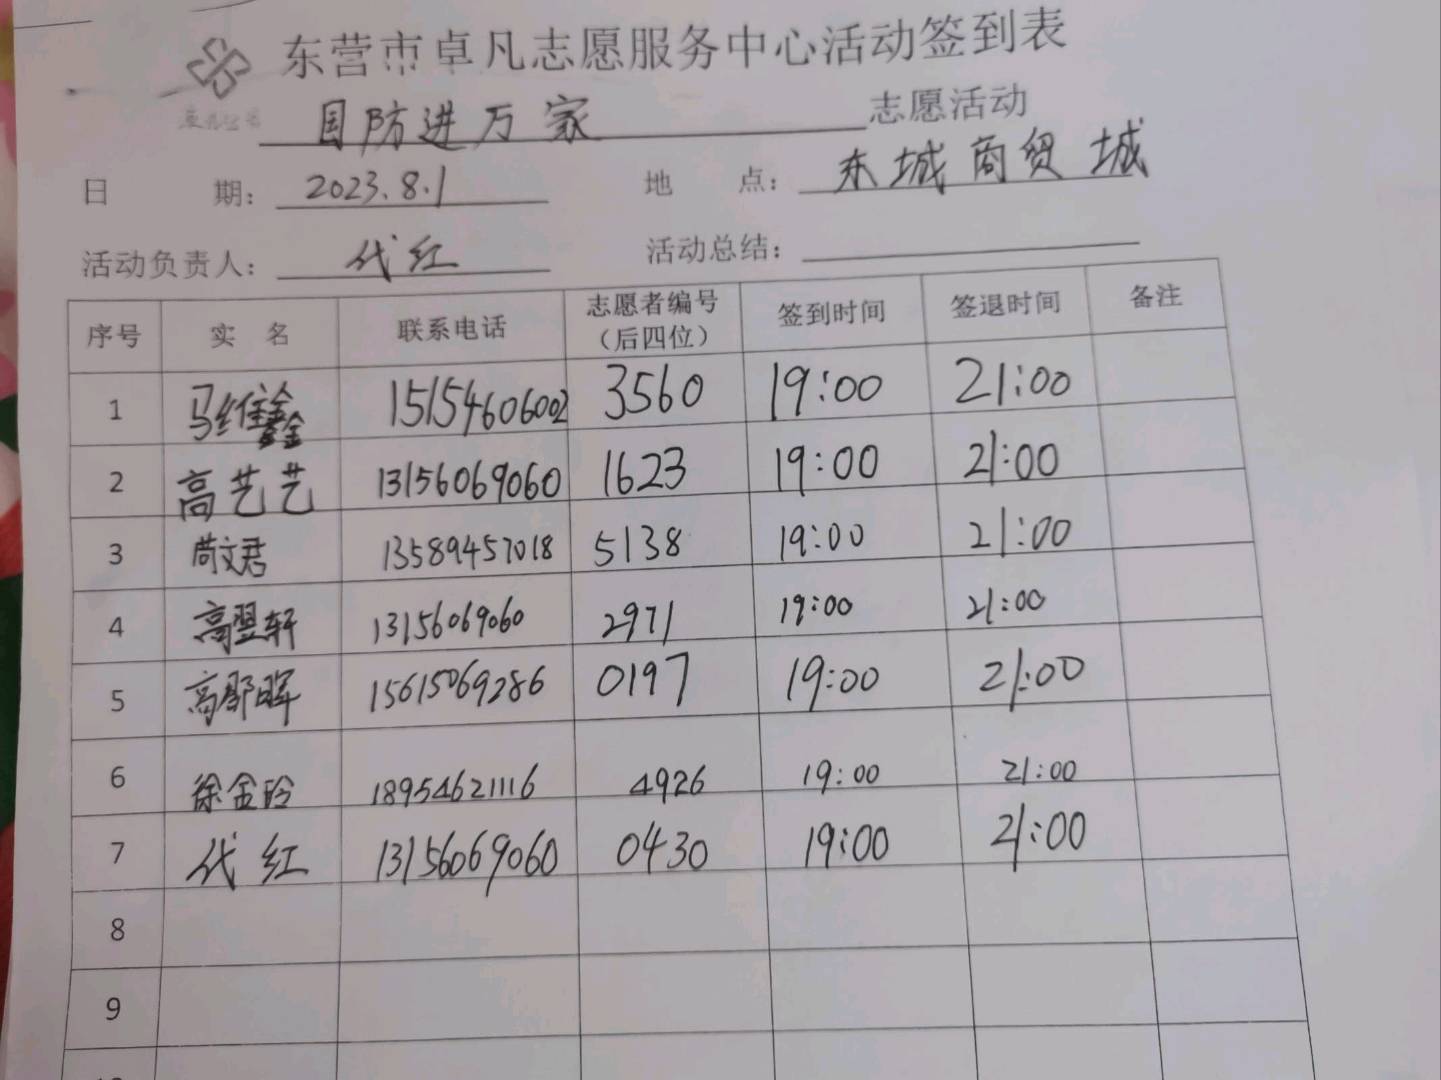 东营市卓凡志愿服务中心活动签到表
国防进万家 志愿活动
日 期： 2023.8.1 地 点： 东城商贸城
活动负责人： 代红 活动总结：
序号 实 名 联系电话 志愿者编号（后四位） 签到时间 签退时间 备注
1 马维鑫 15154606002 3560 19:00 21:00
2 高艺艺 13156069060 1623 19:00 21:00
3 文君 13589457018 5138 19:00 21:00
4 高翌轩 13156069060 2971 19:00 21:00
5 高郡晖 15615069286 0197 19:00 21:00
6 徐金玲 18954621116 4926 19:00 21:00
7 代红 13156069060 0430 19:00 21:00
8
9